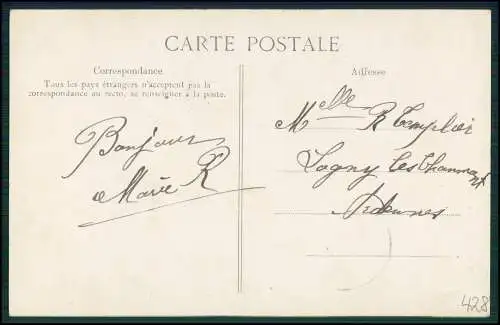 CARTE POSTALE
Correspondance
Tous les pays étrangers n'acceptent pas la
correspondance au recto, se renseigner à la poste.
Adresse
Bonjour
Marie R
Melle R Templier
Logny les Chaumont
Ardennes
428